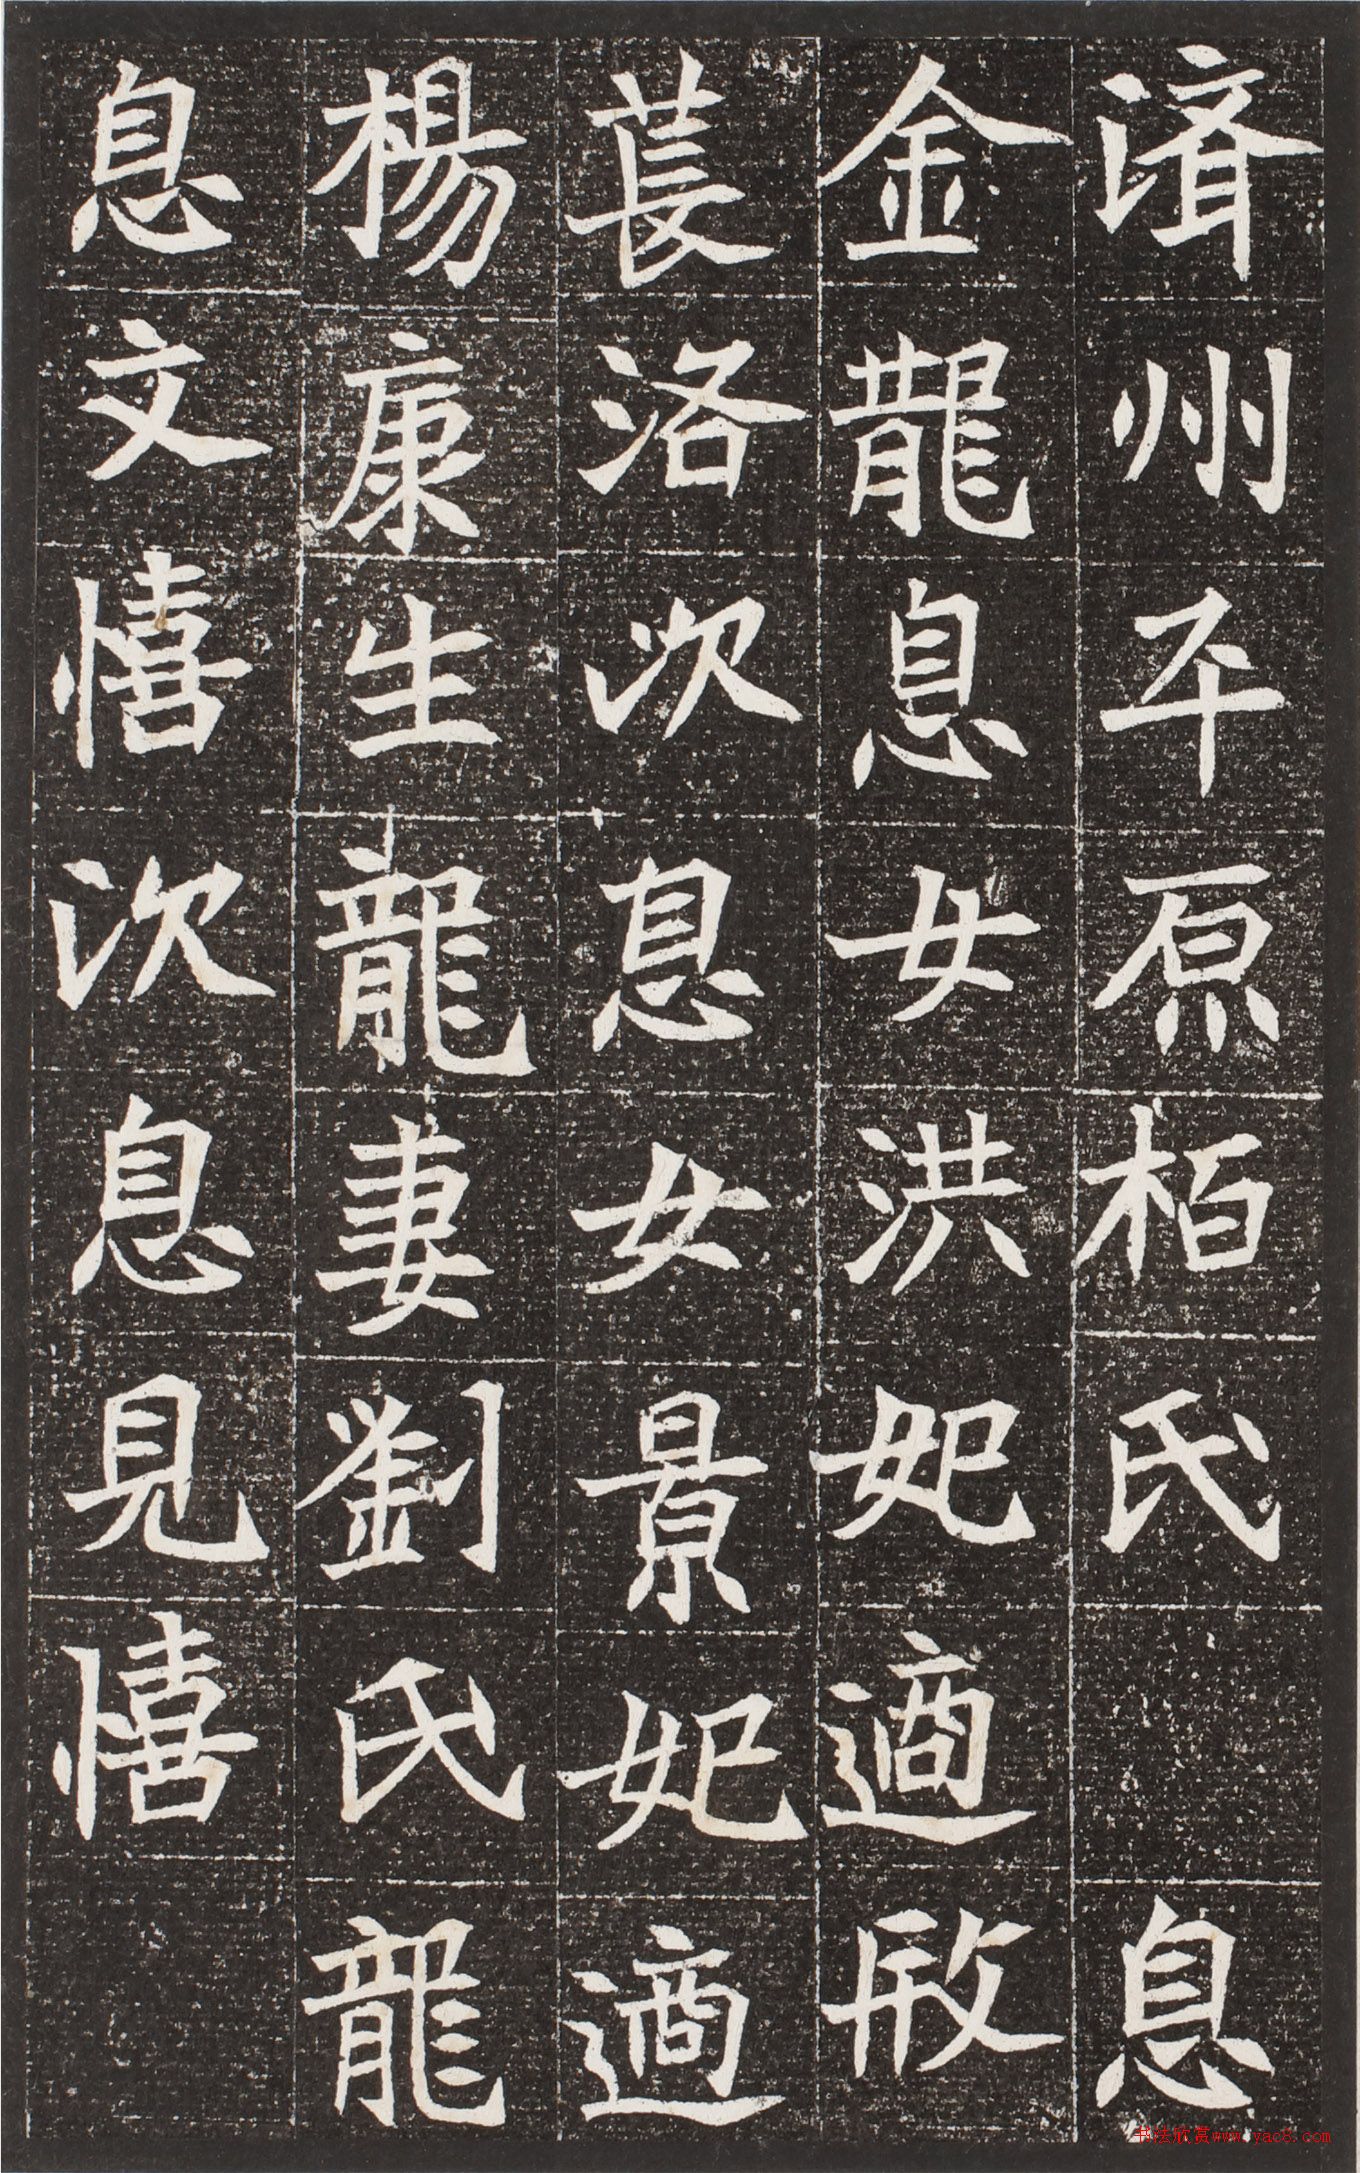 済州平原栢氏　息
金龍息女洪妃適殷
萇洛次息女景妃適
楊康生龍妻劉氏龍
息文憘次息見憘
书法欣赏www.yac8.com